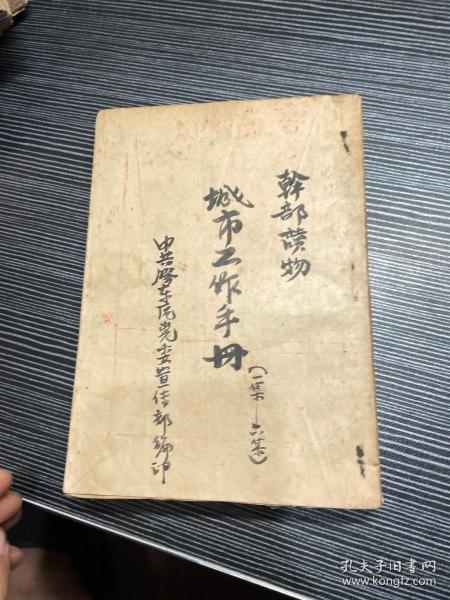 幹部讀物
城市工作手册
(一集—六集)
中共膠东区党委宣传部编印
孔夫子旧书网
www.kongfz.com